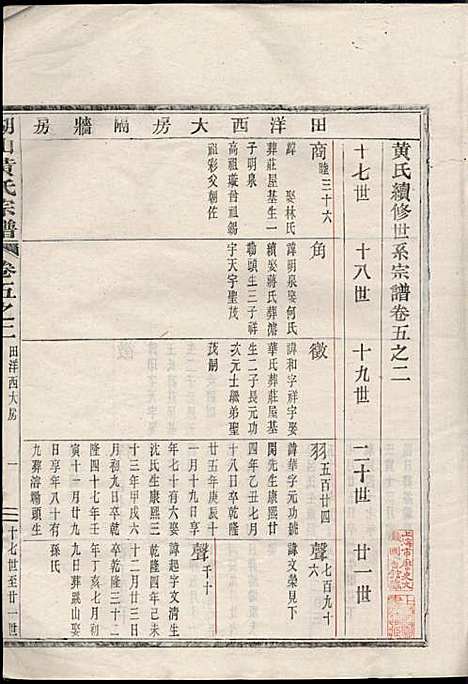 黃氏續修世系宗譜卷五之二
十七世
十八世
十九世
二十世
廿一世
田洋西大房隔牆房
商
睦三十六
諱 娶林氏
葬莊屋基生一
子明泉
高祖璇曾祖錫
祖彩父朝佐
角
諱明泉娶何氏
續娶蔣氏葬澹
塢頭生三子祥
字天字聖茂
徵
諱和字祥字娶
華氏葬莊屋基
生二子長元功
次元士繼弟聖
茂嗣
羽
五百廿四
諱華字元功娶
閔先生康熙廿
四年乙丑七月
十八日卒乾隆
廿五年庚辰十
一月十九日享
年七十有六娶
沈氏生康熙三
十三年甲戌六
月初九日卒乾
隆四十七年壬
寅十一月廿九
日享年八十有
九葬溶塢頭生
聲
七百九十六
諱文榮見下
聲
千十
諱起字文清生
乾隆四年己未
十二月廿三日
卒乾隆五十二
年丁亥七月初
九日葬嶽山娶
孫氏
黃氏宗譜
卷五之二
田洋西大房
一
十七世至廿一世